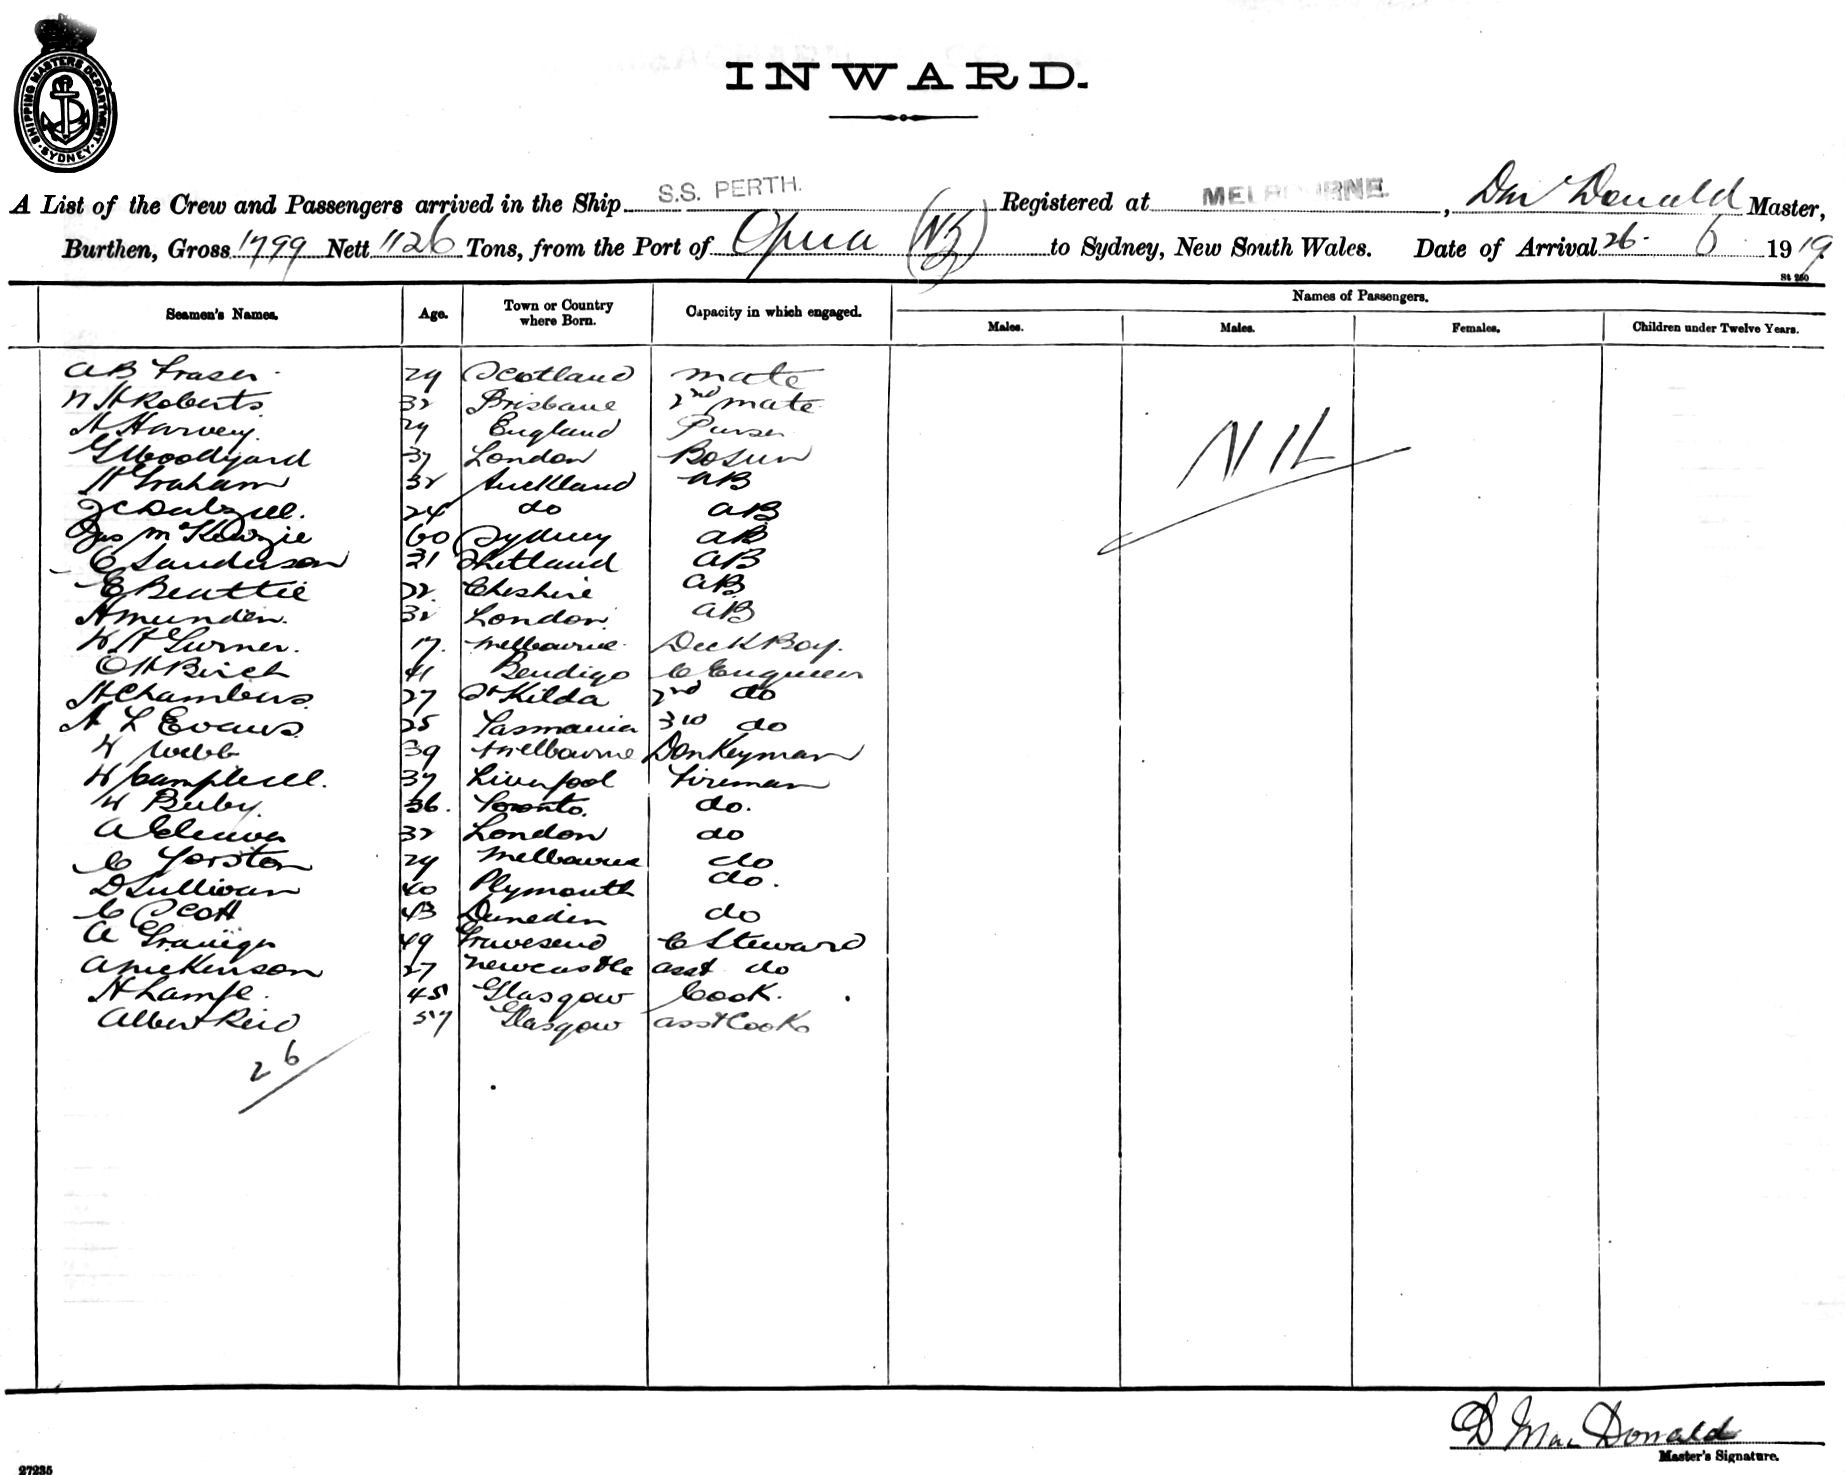 SHIPPING MASTERS DEPARTMENT. SYDNEY.
INWARD.
A List of the Crew and Passengers arrived in the Ship S.S. PERTH. Registered at MELBOURNE. , D McDonald Master,
Burthen, Gross 1799 Nett 1126 Tons, from the Port of Opua (NZ) to Sydney, New South Wales. Date of Arrival 26. 6 1919.
St 260
Seamen's Names. Age. Town or Country where Born. Capacity in which engaged. Names of Passengers.
Males. Males. Females. Children under Twelve Years.
AB Fraser 29 Scotland Mate
W H Roberts 32 Brisbane 2nd Mate
H Harvey 29 England Purser
G Woodyard 37 London Bosun
H Graham 32 Auckland AB
J C Dalzell. 24 do AB
Jas McKenzie 60 Sydney AB
C Sanderson 31 Shetland AB
E Beattie 22 Cheshire AB
H Munden. 32 London. AB
W H Turner. 17. Melbourne Deck Boy.
O H Birch 41 Bendigo C Engineer
H Chambers 27 St Kilda 2nd do
A L Evans 25 Tasmania 3rd do
W Webb 39 Melbourne Donkeyman
W Campbell. 37 Liverpool Fireman
W Beeby. 36. Toronto. do.
A 32 London do
C Yorston 29 Melbourne do
D Sullivan 40 Plymouth do.
C Scott 43 Dunedin do
A Grainger 49 Gravesend C Steward
A Mckinson 27 Newcastle asst do
H Lampe. 45 Glasgow Cook.
Albert Reid 57 Glasgow asst Cook
26
NIL
D MacDonald
Master's Signature.
27235